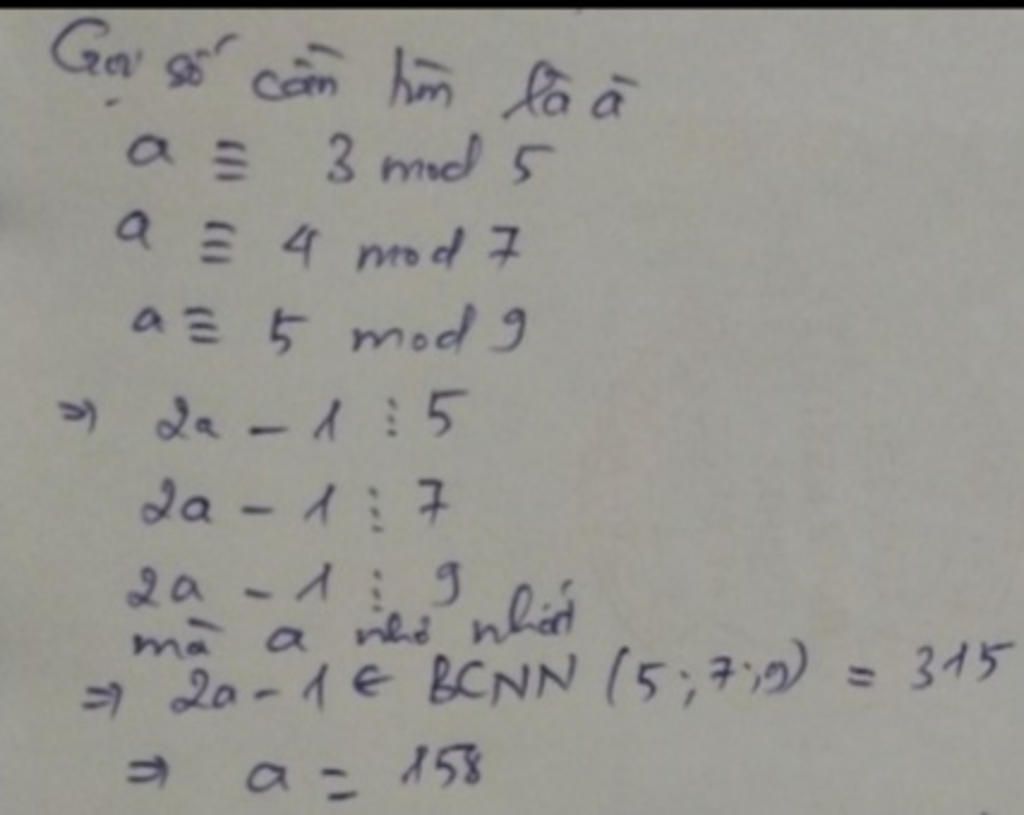 Gọi số cần tìm là a
a ≡ 3 mod 5
a ≡ 4 mod 7
a ≡ 5 mod 9
⇒ 2a - 1 ⋮ 5
2a - 1 ⋮ 7
2a - 1 ⋮ 9
mà a nhỏ nhất
⇒ 2a - 1 ∈ BCNN (5;7;9) = 315
⇒ a = 158